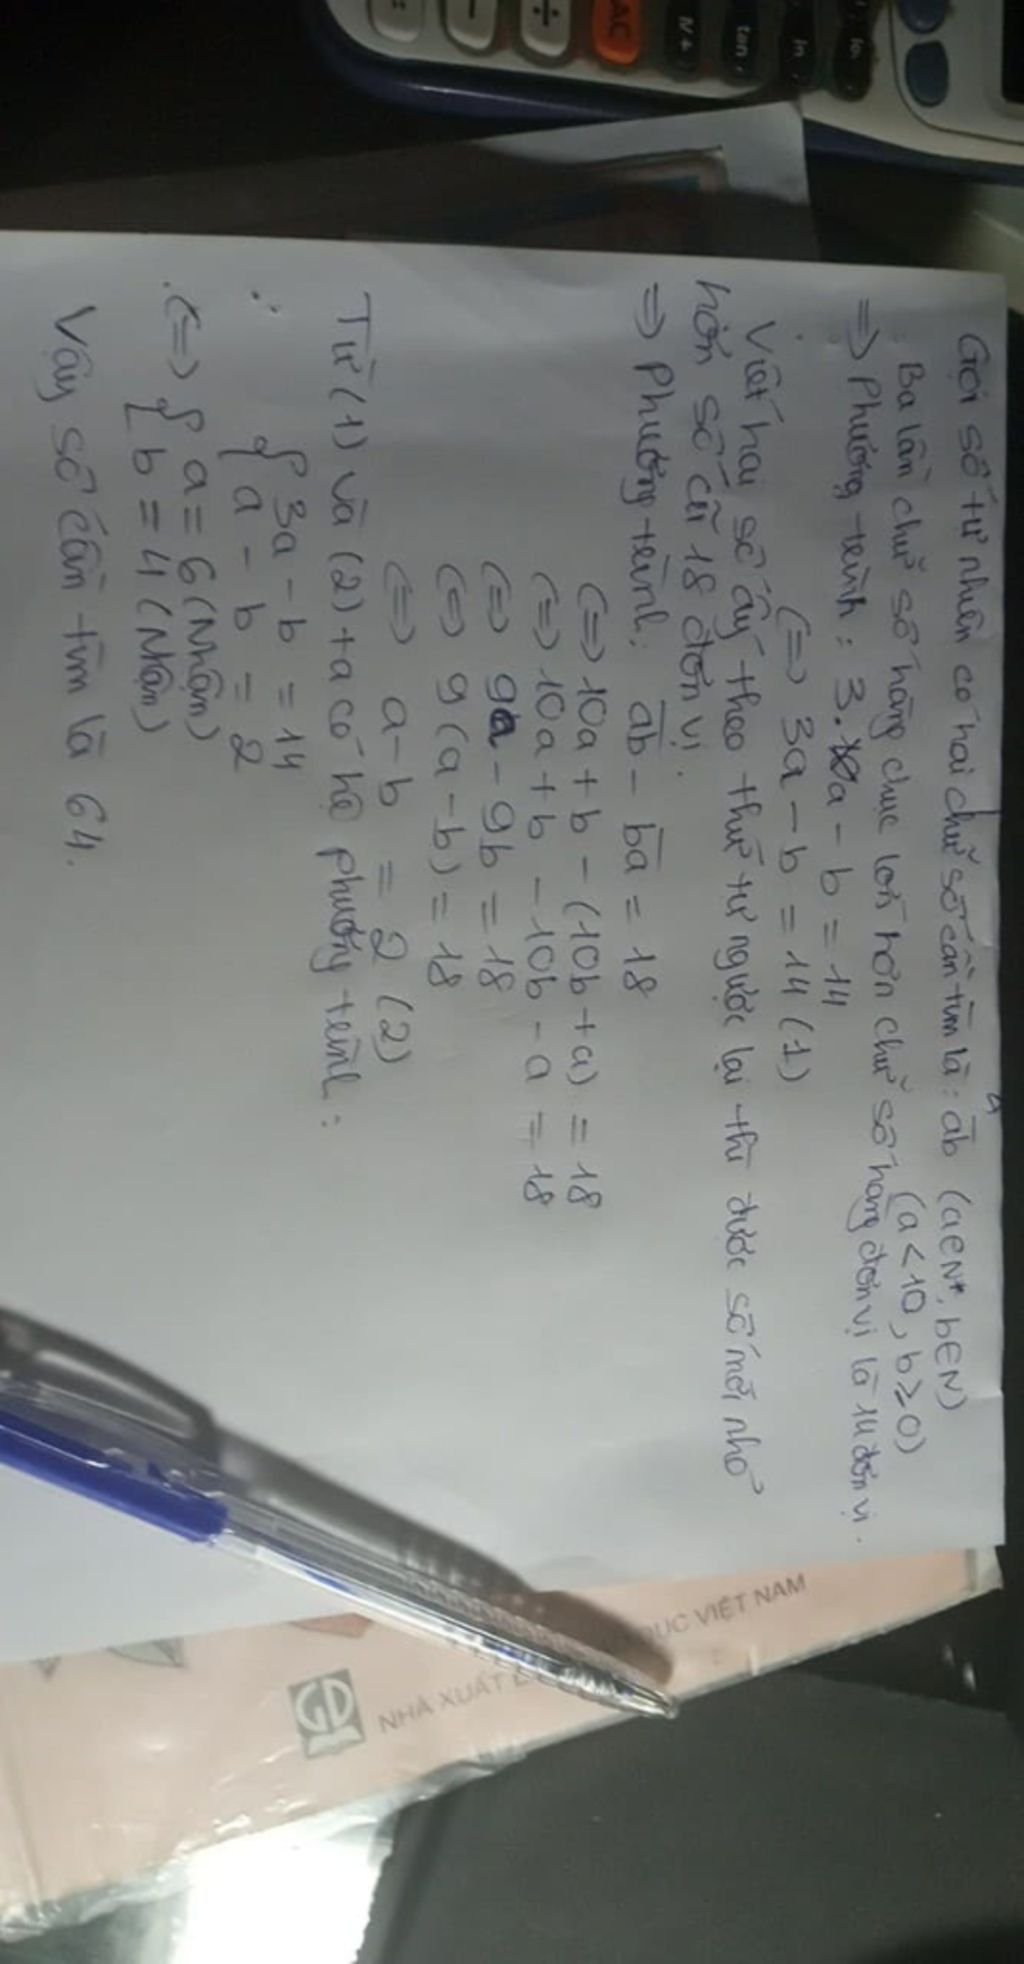 Gọi số tự nhiên có hai chữ số cần tìm là: ab (a∈N*, b∈N)
(a < 10, b ≥ 0)
Ba lần chữ số hàng chục lớn hơn chữ số hàng đơn vị là 14 đơn vị.
=> Phương trình: 3.a - b = 14
<=> 3a - b = 14 (1)
Viết hai số ấy theo thứ tự ngược lại thì được số mới nhỏ
hơn số cũ 18 đơn vị.
=> Phương trình: ab - ba = 18
<=> 10a + b - (10b + a) = 18
<=> 10a + b - 10b - a = 18
<=> 9a - 9b = 18
<=> 9 (a - b) = 18
<=> a - b = 2 (2)
Từ (1) và (2) ta có hệ phương trình:
{ 3a - b = 14
a - b = 2
<=> { a = 6 (nhận)
b = 4 (nhận)
Vậy số cần tìm là 64.
NHÀ XUẤT DỤC VIỆT NAM
GD
AC
÷
−
=
tan
ln